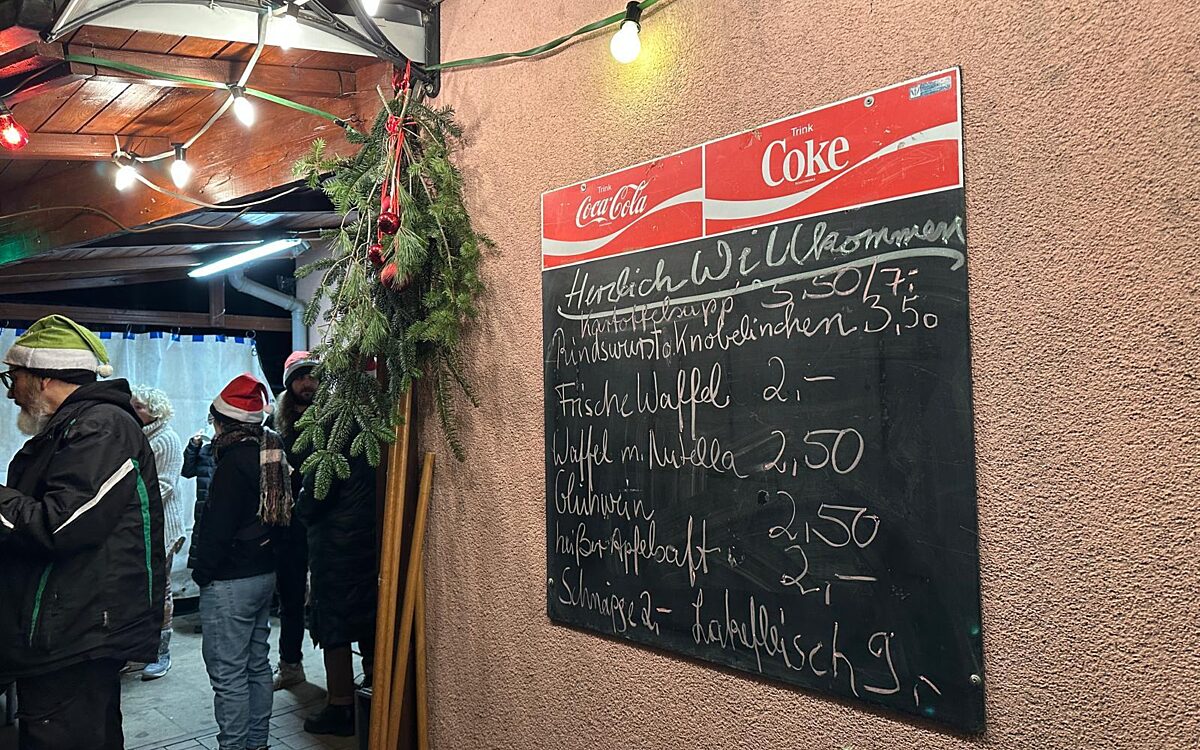 Trink
Coca-Cola
Trink
Coke
Herzlich Willkommen
Kartoffelsupp 3,50/7,-
Rindswurst o Knobelinchen 3,50
Frische Waffel 2,-
Waffel m. Nutella 2,50
Glühwein 2,50
heißer Apfelsaft 2,-
Schnäpse 2,- Lakefleisch 9,-